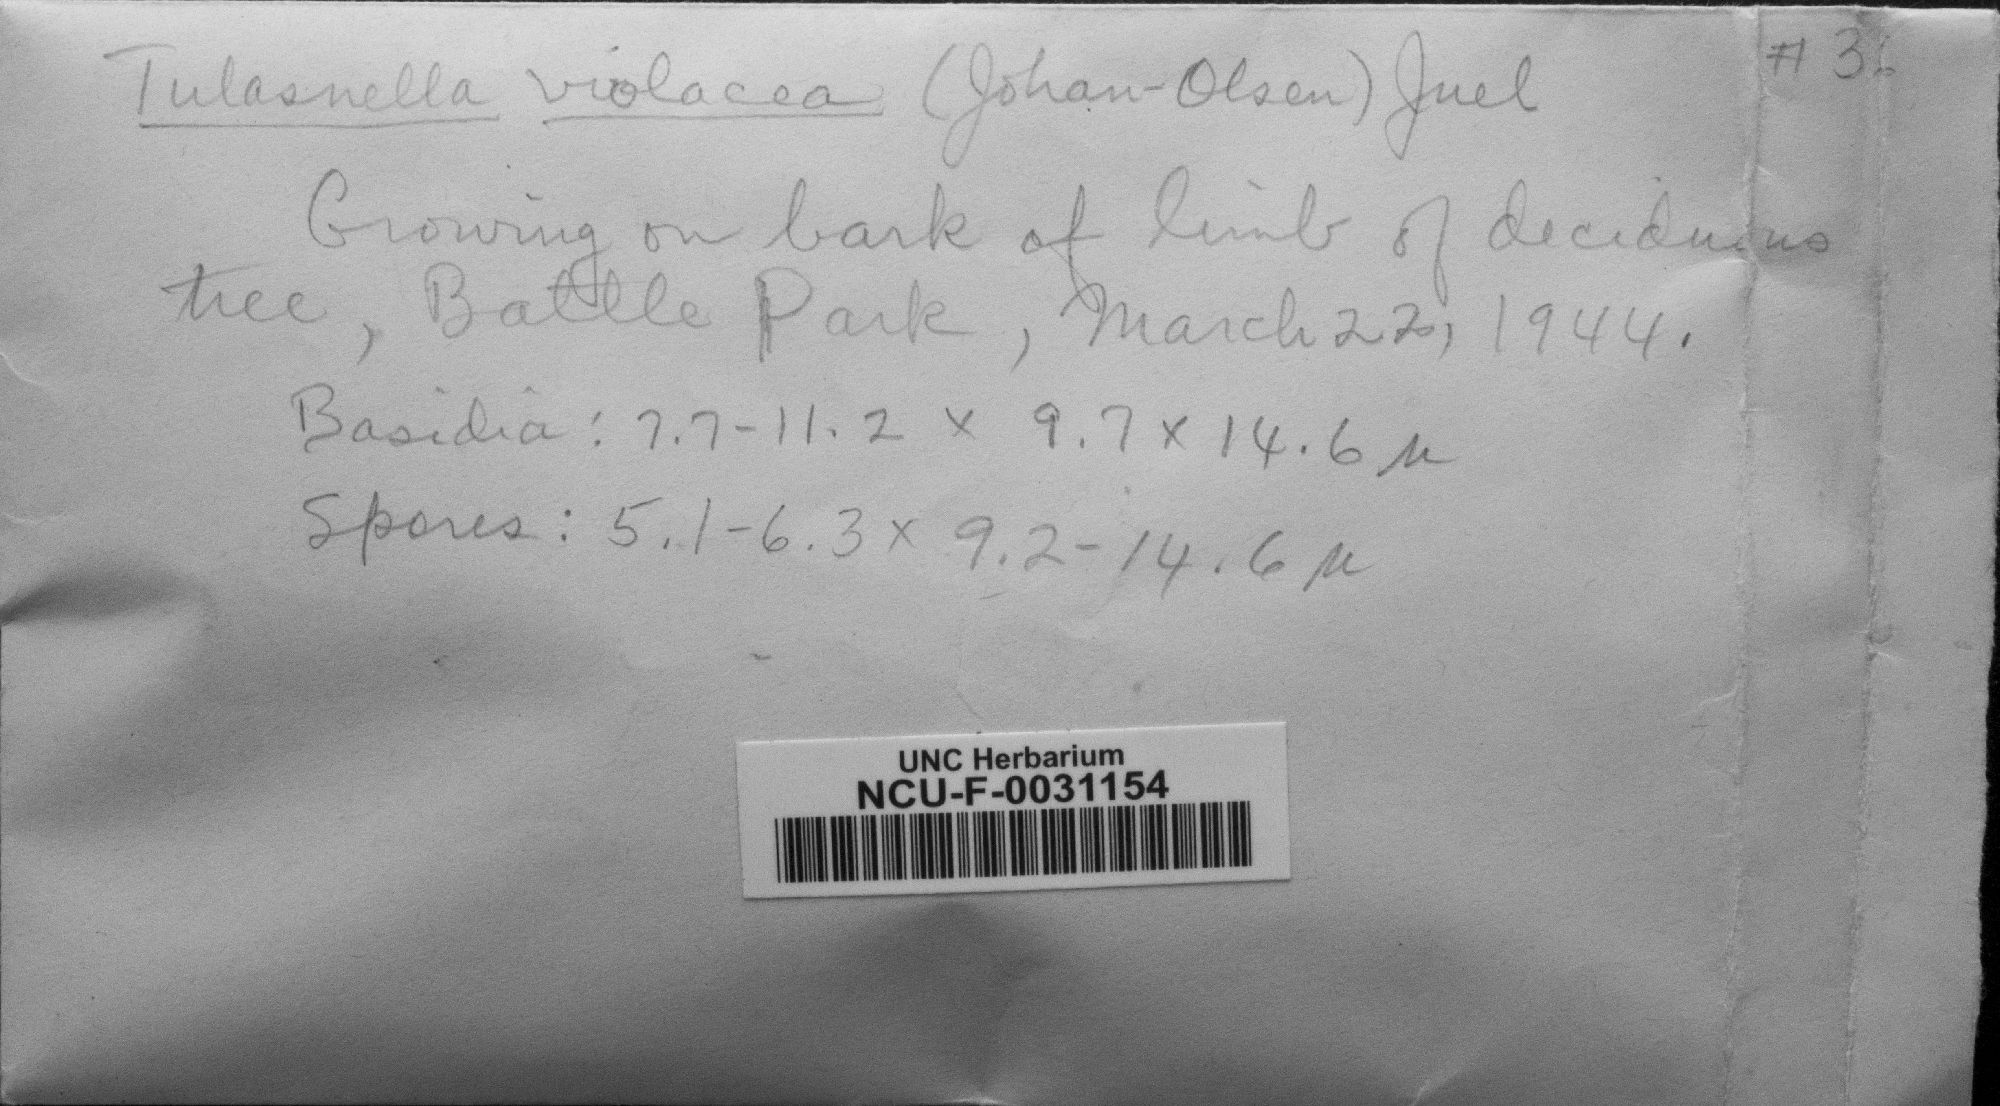 Tulasnella violacea (Johan-Olsen) Juel
Growing on bark of limb of deciduous
tree, Battle Park, March 22, 1944.
Basidia: 7.7-11.2 x 9.7 x 14.6 µ
Spores: 5.1-6.3 x 9.2-14.6 µ
UNC Herbarium
NCU-F-0031154